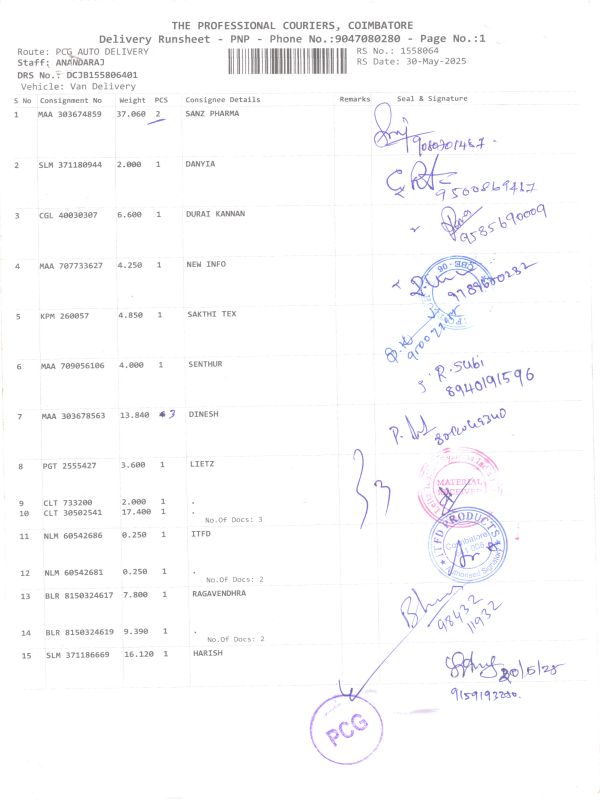 THE PROFESSIONAL COURIERS, COIMBATORE
Delivery Runsheet - PNP - Phone No.:9047080280 - Page No.:1
Route: PCG AUTO DELIVERY
RS No.: 1558064
Staff: ANANDARAJ
RS Date: 30-May-2025
DRS No.: DCJB155806401
Vehicle: Van Delivery
S No Consignment No Weight PCS Consignee Details Remarks Seal & Signature
1 MAA 303674859 37.060 2 SANZ PHARMA
2 SLM 371180944 2.000 1 DANYIA
9500869417
3 CGL 40030307 6.600 1 DURAI KANNAN
9585690009
4 MAA 707733627 4.250 1 NEW INFO
CBE - 06
5 KPM 260057 4.850 1 SAKTHI TEX
6 MAA 709056106 4.000 1 SENTHUR
R. Subi
8940191596
7 MAA 303678563 13.840 3 DINESH
8 PGT 2555427 3.600 1 LIETZ
3
MATERIAL
RECEIVED
9 CLT 733200 2.000 1 .
10 CLT 30502541 17.400 1 .
No.Of Docs: 3
11 NLM 60542686 0.250 1 ITFD
ITFD PRODUCTS
Coimbatore
Authorised Signatory
12 NLM 60542681 0.250 1 .
No.Of Docs: 2
13 BLR 8150324617 7.800 1 RAGAVENDHRA
98432
11932
14 BLR 8150324619 9.390 1 .
No.Of Docs: 2
15 SLM 371186669 16.120 1 HARISH
30/5/25
PCG